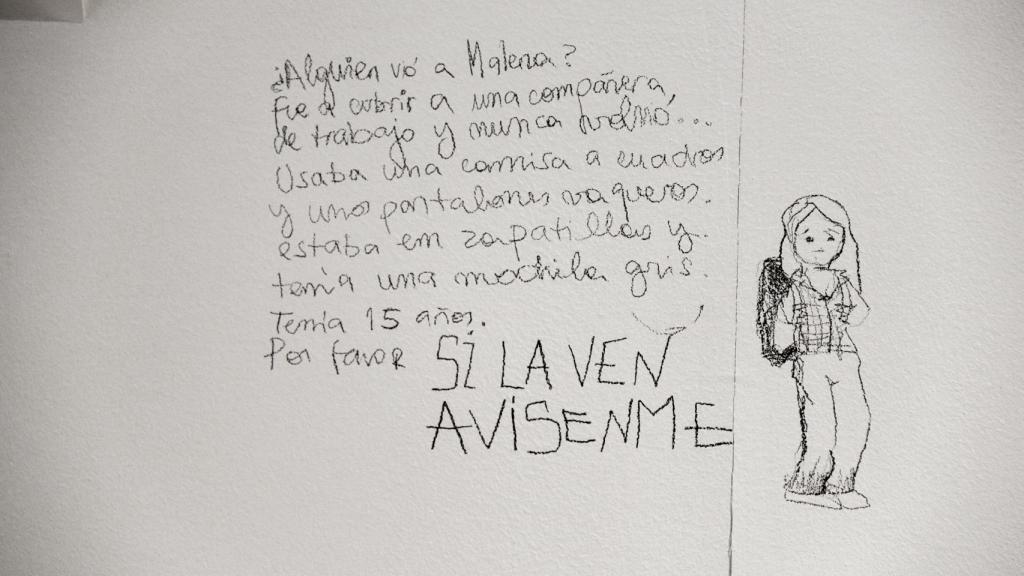 ¿Alguien vió a Malena?
fue a cubrir a una compañera,
de trabajo y nunca volvió...
Usaba una camisa a cuadros
y unos pantalones vaqueros.
estaba em zapatillas y.
tenía una mochila gris.
Tenia 15 años.
Por favor SI LA VEN
AVISENME